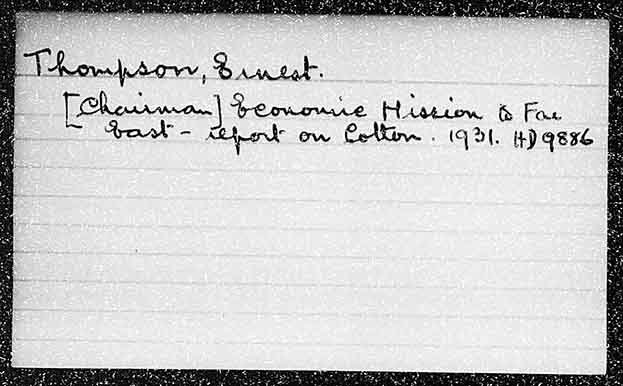 Thompson, Ernest.
[Chairman] Economic Mission to Far
East - report on Cotton. 1931. HD9886